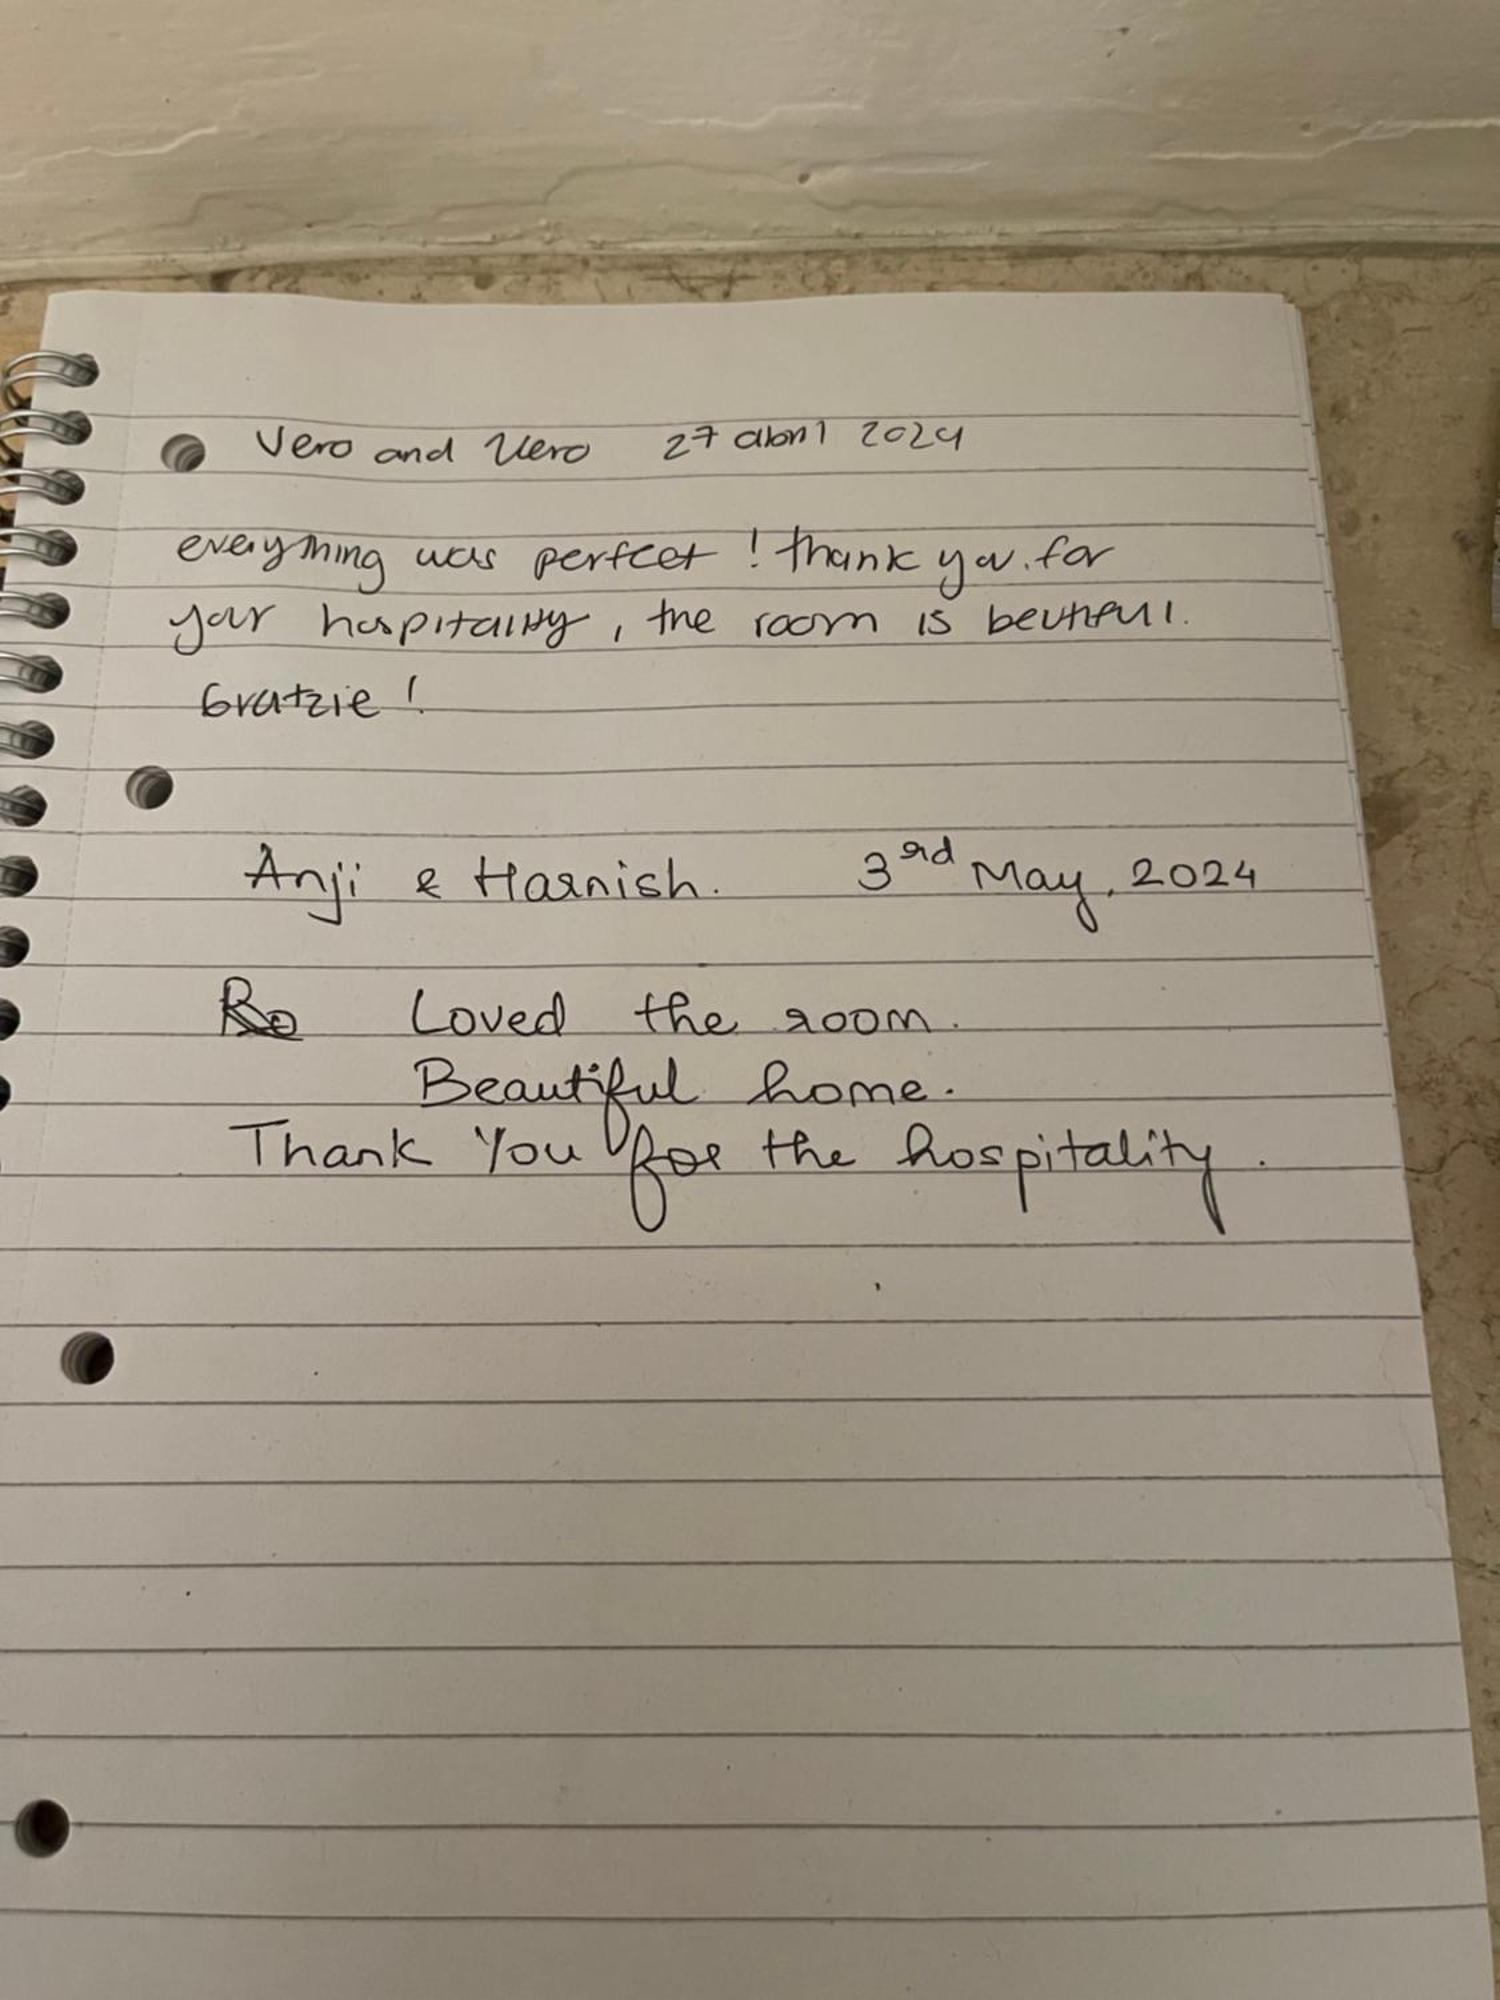 Vero and Vero 27 abril 2024
everything was perfect ! thank you for
your hospitality, the room is beutiful.
Gratzie !
Anji & Harnish. 3rd May, 2024
Loved the room.
Beautiful home.
Thank You for the hospitality.